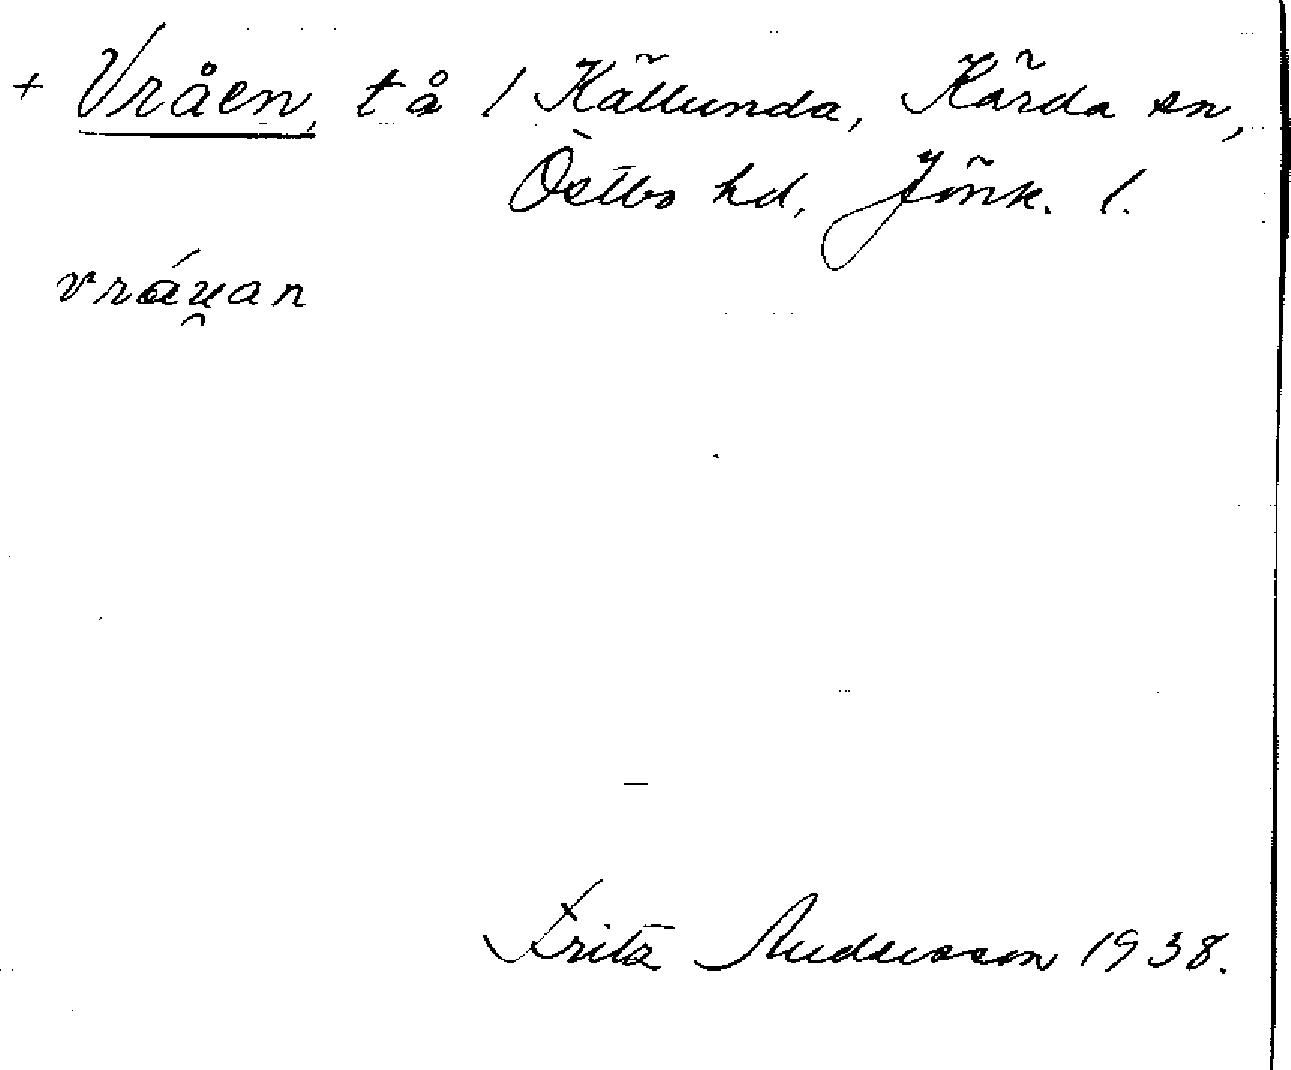 + Vråen, tå / Källunda, Kärda sn,
Östbo hd, Jönk. l.
vrá́u̯an
Fritz Andersson 1938.